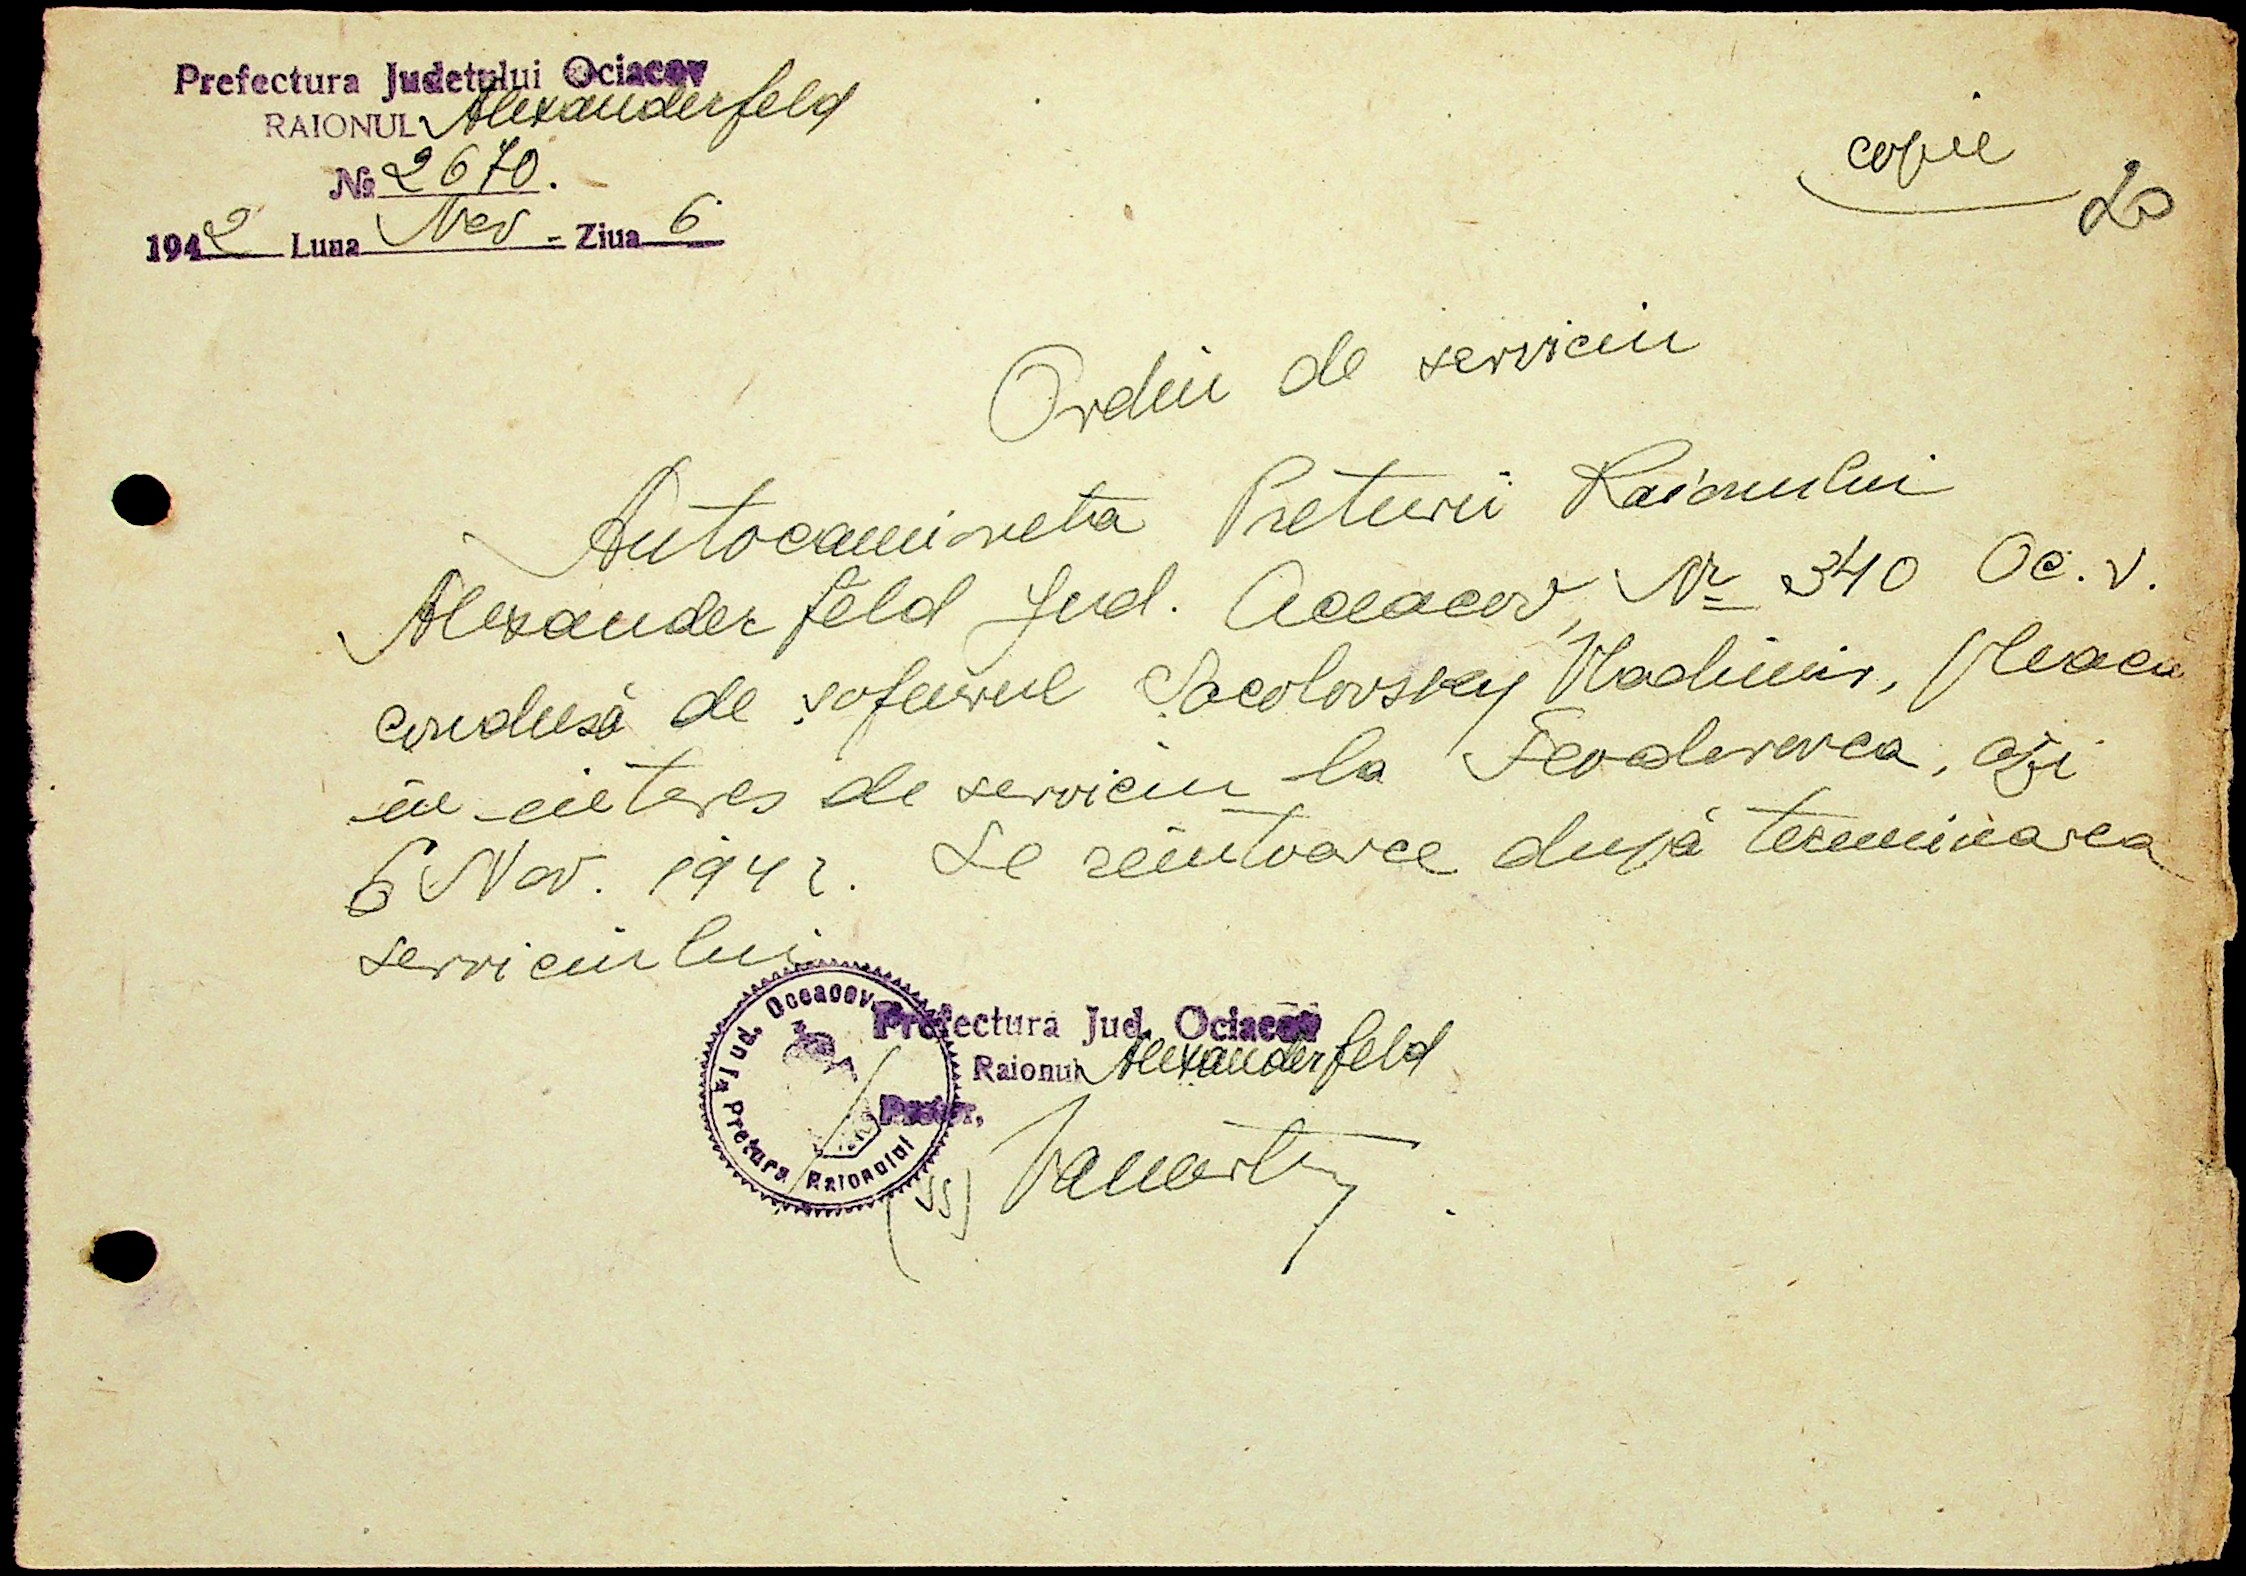 Prefectura Judetului Ociacov
RAIONUL Alexanderfeld
№ 2670.
1942 Luna Nov - Ziua 6
copie
20
Ordin de serviciu
Autocamioneta Preturii Raionului
Alexanderfeld Jud. Oceacov, Nr 340 Oc. V.
condusă de șoferul Socolovsky Vladimir, pleacă
în interes de serviciu la Feodorovca, azi
6 Nov. 1942. Se reîntoarce după terminarea
serviciului
Jud. Oceacov
Pretura Raionului
Prefectura Jud. Ociacov
Raionul Alexanderfeld
Pretor,
(ss)